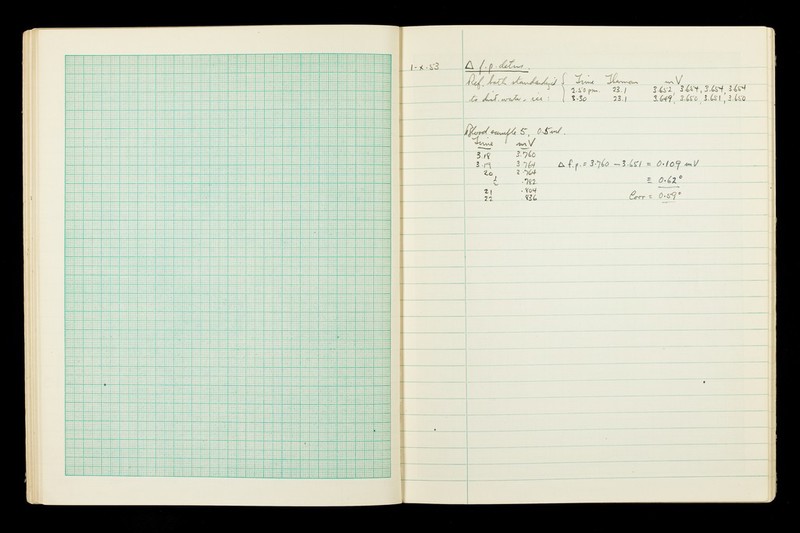 1-X-53 Δ f.p. detns.
Ref. bath standardized { Time Thermom mV
to dist. water, ice: 2.50 pm 23.1 3.652, 3.654, 3.654, 3.654
3.30 23.1 3.649, 3.650, 3.651, 3.650
Blood sample 5, 0.5 ml.
Time mV
3.18 3.760
3.19 3.764 Δ f.p. = 3.760 - 3.651 = 0.109 mV
20 3.764
½ .782 ≡ 0.62°
21 .804
22 .836 Corr = 0.59°